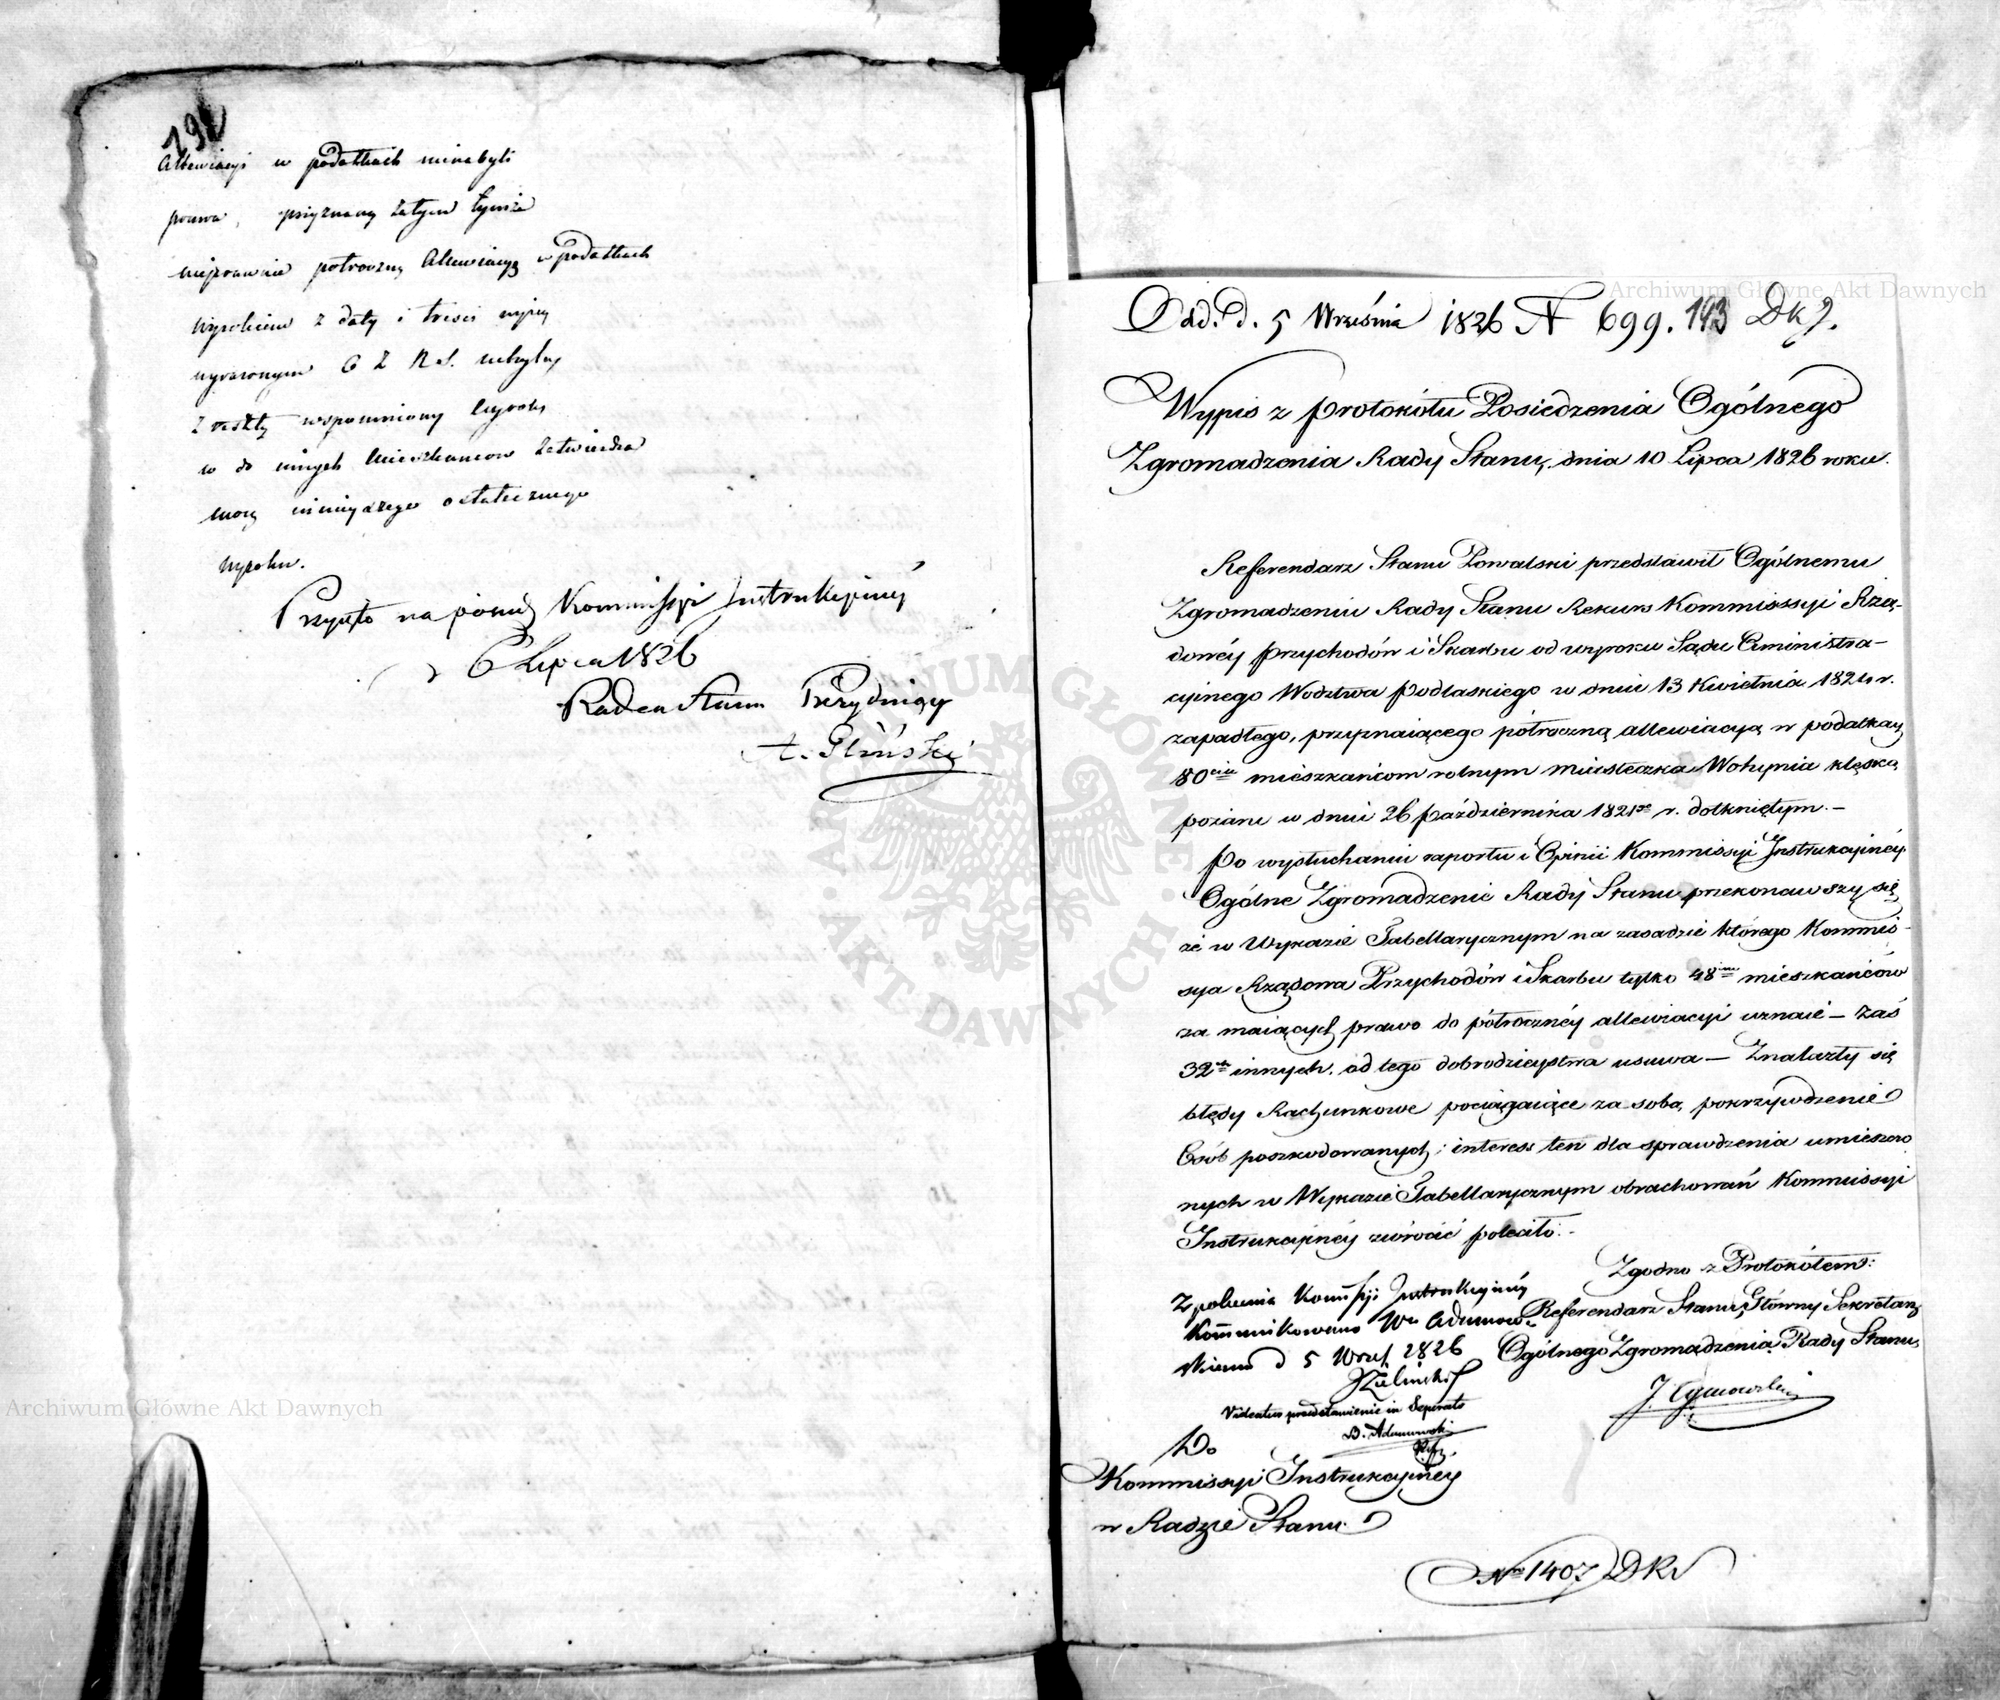 192
Allewiacyi w podatkach nienabyli
prawa, przyznaną zatym tymże
nieprawnie półroczną Allewiacyą w podatkach
wyrokiem z daty i treści wyżej
wyrażonym O Z R S. uchyla,
z resztą wspomniony wyrok
w do innych Mieszkańców zatwierdza
mocą niniejszego ostatecznego
wyroku.
Przyięto na posiedz Kommissyi Instrukcyiney
d 6 Lipca 1826
Radca Stanu Prezyduiący
A. Gliński
Odd. d. 5 Września 1826 N 699. 193 DKJ.
Wypis z Protokółu Posiedzenia Ogólnego
Zgromadzenia Rady Stanu, dnia 10 Lipca 1826 roku.
Referendarz Stanu Powalski przedstawił Ogólnemu
Zgromadzeniu Rady Stanu Rekurs Kommissyi Rzą-
dowéy Przychodów i Skarbu od wyroku Sądu Administra-
cyinego Wodztwa Podlaskiego w dniu 13 Kwietnia 1824 r.
zapadłego, przyznaiącego półroczną allewiacyą w podatkach
80ciu mieszkańcom rolnym Miasteczka Wohynia klęską
pożaru w dniu 26 Października 1821go r. dotkniętym.-
Po wysłuchaniu raportu i Opinii Kommissyi Instrukcyinéy
Ogólne Zgromadzenie Rady Stanu przekonawszy się
że w Wykazie Tabellarycznym na zasadzie którego Kommis-
sya Rządowa Przychodów i Skarbu tylko 48miu mieszkańców
za maiących prawo do półrocznéy allewiacyi uznaie - zaś
32ch innych, od tego dobrodzieystwa usuwa - Znalazły się
błędy Rachunkowe pociągaiące za sobą pokrzywdzenie
Osób poszkodowanych; interess ten dla sprawdzenia umieszczo
nych w Wykazie Tabellarycznym obrachowań Kommissyi
Instrukcyinéy zwrócić poleciło.-
Zgodno z Protokółem:
Referendarz Stanu, Główny Sekretarz
Ogólnego Zgromadzenia Rady Stanu,
Z polecenia Komissyi Instrukcyinéy
Kommunikowano Wu Adamow-
skiemu d 5 Wrześ. 1826
JZieliński
Videatur przedstawienie in Separato
D. Adamowski
Do
Kommissyi Instrukcyinéy
w Radzie Stanu
No 1407 DKs
Archiwum Główne Akt Dawnych
Archiwum Główne Akt Dawnych
ARCHIWUM GŁÓWNE · AKT DAWNYCH ·